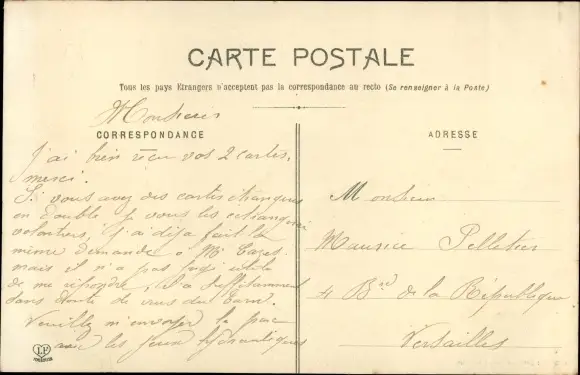 CARTE POSTALE
Tous les pays Etrangers n'acceptent pas la correspondance au recto (Se renseigner à la Poste)
Monsieur
CORRESPONDANCE
j'ai bien reçu vos 2 cartes,
merci.
Si vous avez des cartes étrangères
en double je vous les échangerai
volontiers, j'ai déjà fait la
même demande à Mr Cazes
mais il n'a pas jugé utile
de me répondre, il a suffisamment
sans doute de vues du Tarn.
Veuillez m'envoyer le parc
avec les jeux hydrauliques
ADRESSE
Monsieur
Maurice Pelletier
4 Bd de la République
Versailles
LF